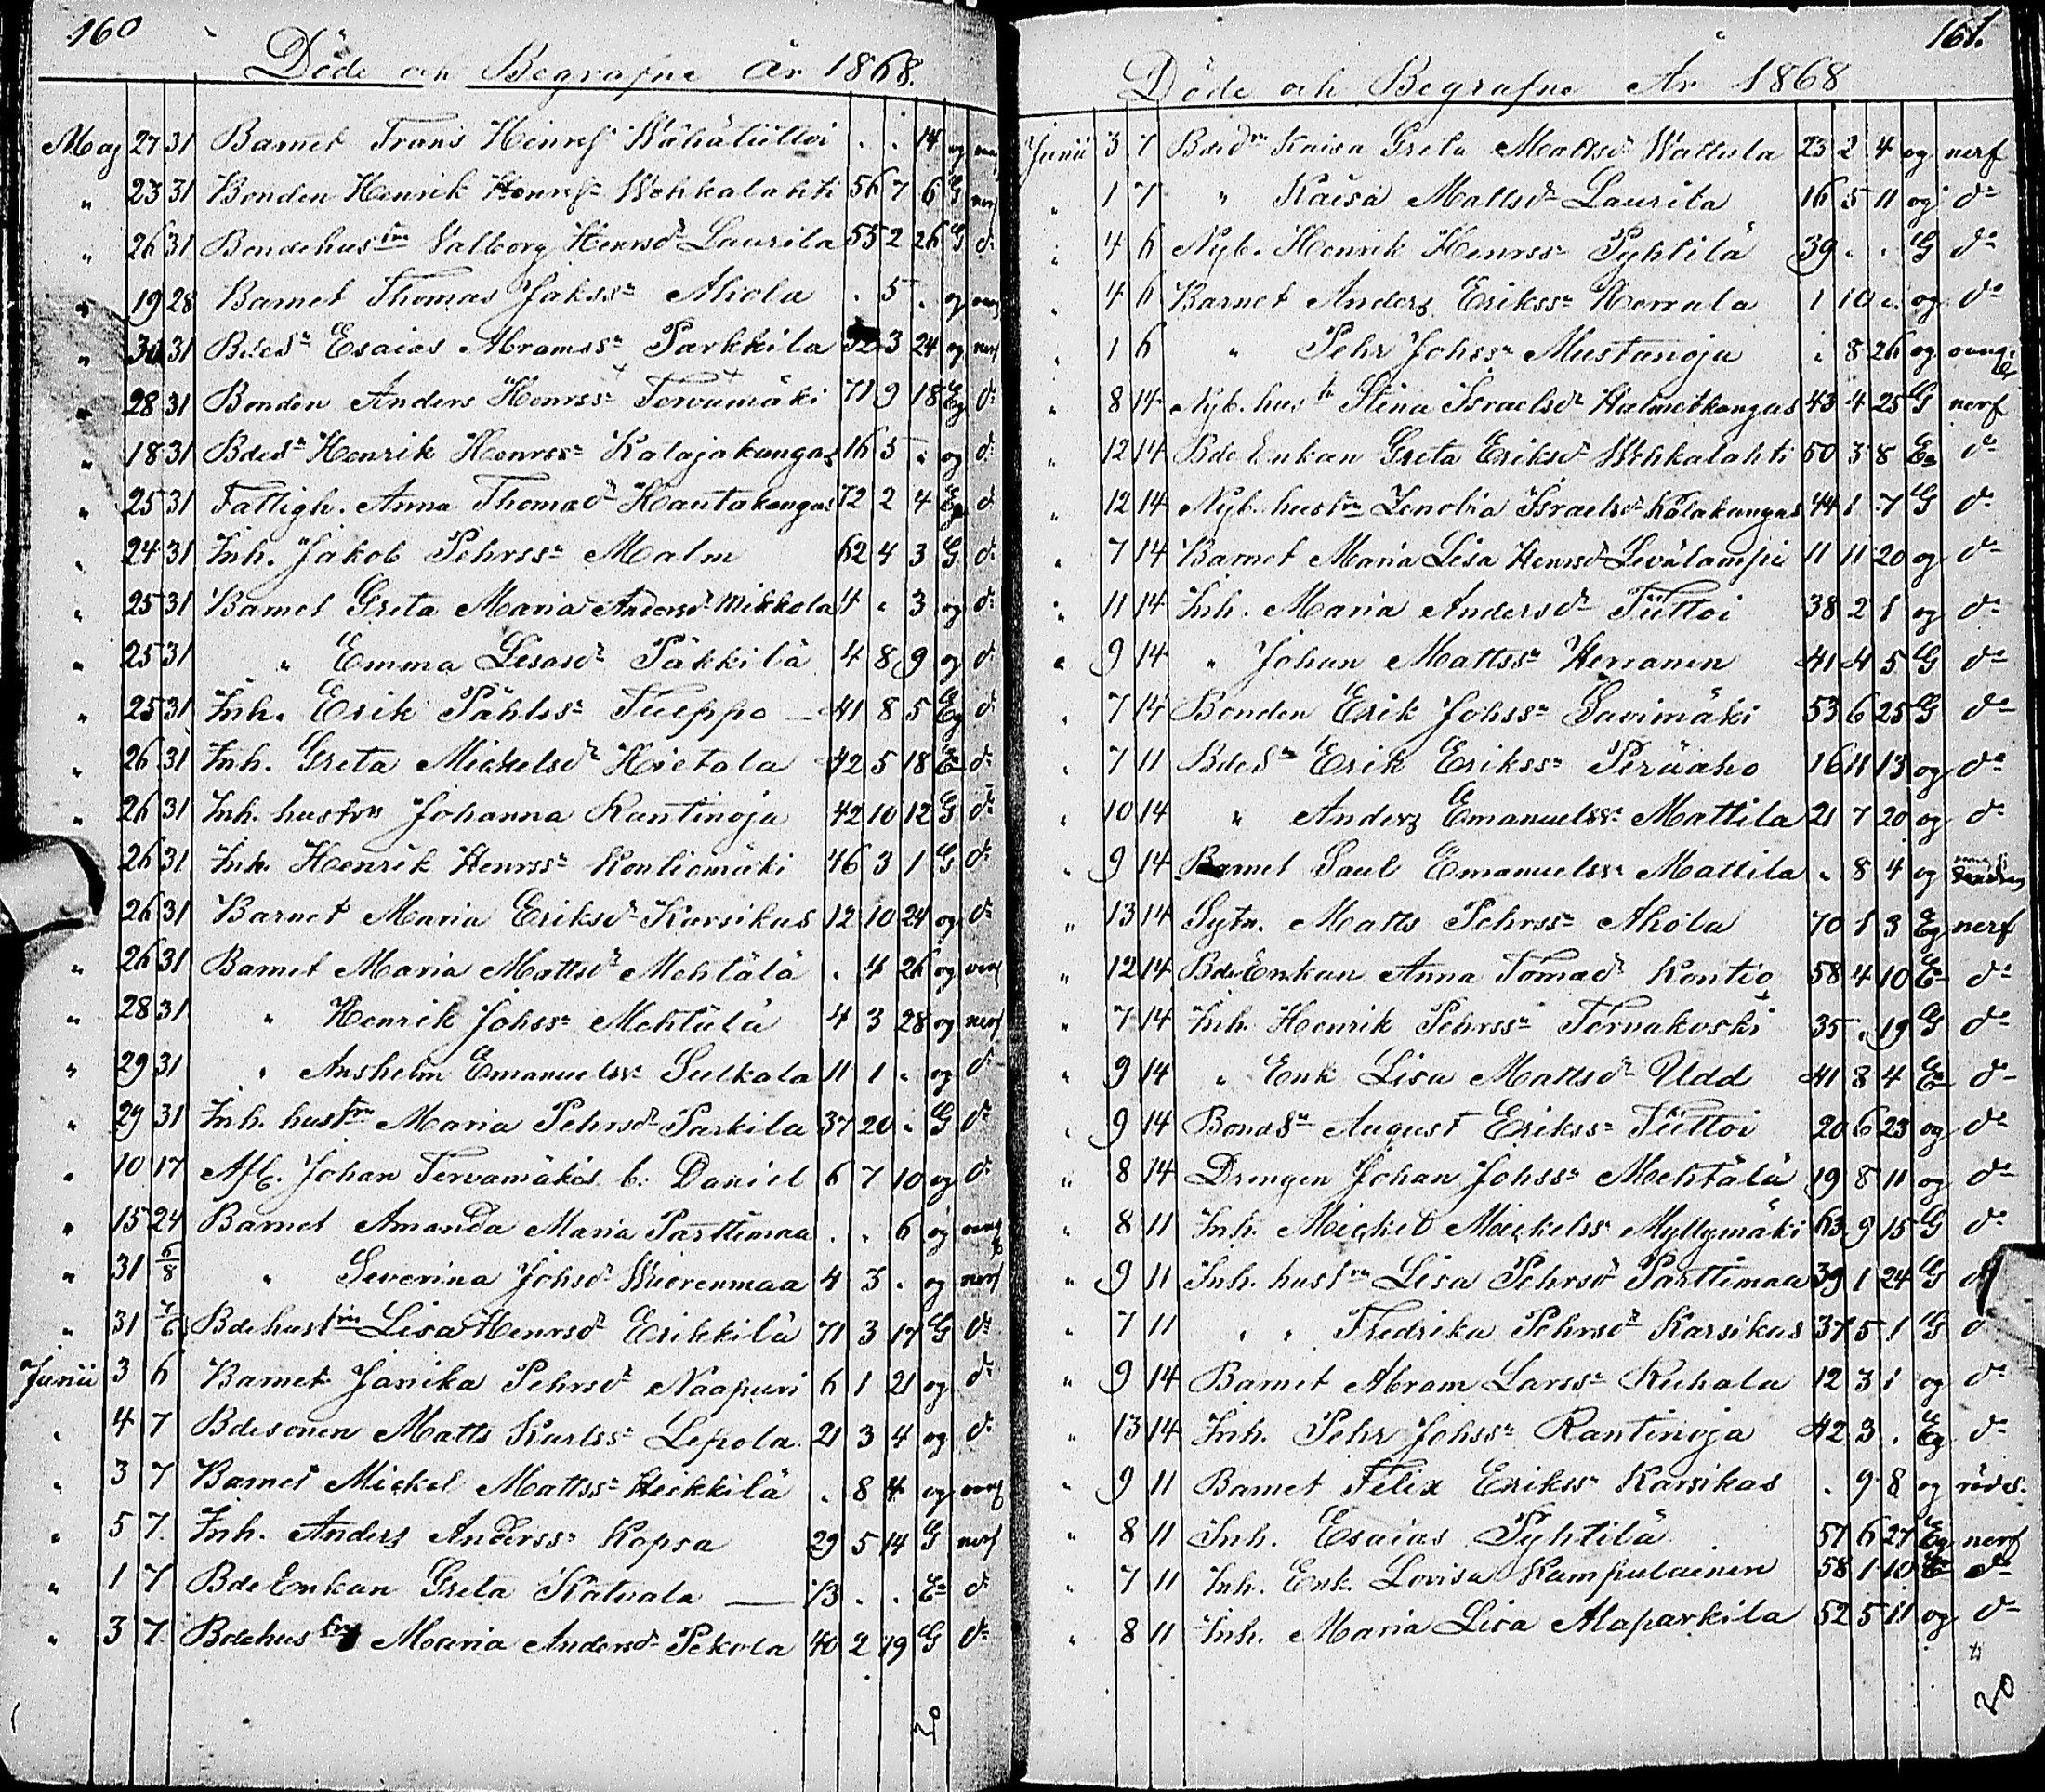 160
Döde och Begrafne år 1868.
Maj 27 31 Barnet Frans Henrss Wähätiittoi . . 14 og
" 23 31 Bonden Henrik Henrss Wehkalahti 56 7 6 G nerf
" 26 31 Bondehustru Valborg Henrsdr Laurila 55 2 26 G do
" 19 28 Barnet Thomas Jakssn Ahola . 5 . og
" 30 31 Bdesn Esaias Abramssn Parkkila 3 24 og nerf
" 28 31 Bonden Anders Henrssn Tervamäki 71 9 18 Eg do
" 18 31 Bdesn Henrik Henrssn Katajakangas 16 5 " og do
" 25 31 Fattigh. Anna Thomadr Hautakangas 72 2 4 do
" 24 31 Inh. Jakob Pehrssn Malm 62 4 3 G do
" 25 31 Barnet Greta Maria Andersdr Mikkola 4 " 3 og do
" 25 31 " Emma Lisasdr Päkkilä 4 8 9 og do
" 25 31 Inh. Erik Påhlssn Tieppo — 41 8 5 Eg do
" 26 31 Inh. Greta Mickelsdr Hietala 42 5 18 En do
" 26 31 Inh. hustru Johanna Rantinoja 42 10 12 G do
" 26 31 Inh. Henrik Henrssn Kontiomäki 46 3 1 G do
" 26 31 Barnet Maria Eriksdr Karsikas 12 10 24 og do
" 26 31 Barnet Maria Mattsdr Mehtälä . 4 26 og
" 28 31 " Henrik Johssn Mehtälä 4 3 28 og nerf
" 29 31 " Anshelm Emanuelssn Sulkala 11 1 " og do
" 29 31 Inh. hustru Maria Pehrsdr Parkila 37 20 " G do
" 10 17 Afl. Johan Tervamäkis b. Daniel 6 7 10 og do
" 15 24 Barnet Amanda Maria Parttimaa . . 6 og
" 31 6/8 " Severina Johsdr Wuorenmaa 4 3 . og nerf
" 31 7/6 Bdehustru Lisa Henrsdr Erikkilä 71 3 17 G do
Junii 3 6 Barnet Janika Pehrsdr Naapuri 6 1 21 og do
" 4 7 Bdesonen Matts Karlssn Lepola 21 3 4 og do
" 3 7 Barnet Mickel Mattssn Heikkilä . 8 4 og
" 5 7. Inh. Anders Anderssn Kopsa 29 5 14 G nerf
" 1 7 Bde Enkan Greta Katvala — 73 . . En do
" 3 7 Bdehustru Maria Andersdr Pekola 40 2 19 G do
20
161.
Döde och Begrafne År 1868
Junii 3 7 Bdedn Kaisa Greta Mattsdr Wattula 23 2 4 og nerf
" 1 7 " Kaisa Mattsdr Laurila 16 5 11 og do
" 4 6 Nyb. Henrik Henrssn Pyhtilä 39 . . G do
" 4 6 Barnet Anders Erikssn Herrala 1 10 " og do
" 1 6 " Pehr Johssn Mustanoja " 8 26 og
" 8 14 Nyb. hustr Stina Israelsdr Halmetkangas 43 4 25 G nerf
" 12 14 Bde Enkan Greta Eriksdr Wehkalahti 50 3 8 En do
" 12 14 Nyb. hustru Zenobia Israelsdr Kalakangas 44 1 7 G do
" 7 14 Barnet Maria Lisa Henrsdr Levälampi 11 11 20 og do
" 11 14 Inh. Maria Andersdr Tiittoi 38 2 1 og do
" 9 14 " Johan Mattssn Herranen 41 4 5 G do
" 7 14 Bonden Erik Johssn Savimäki 53 6 25 G do
" 7 11 Bdesn Erik Erikssn Peräaho 16 11 13 og do
" 10 14 " Anders Emanuelssn Mattila 21 7 20 og do
" 9 14 Barnet Saul Emanuelssn Mattila " 8 4 og
" 13 14 Sytn. Matts Pehrssn Ahola 70 1 3 Eg nerf
" 12 14 Bde Enkan Anna Tomadr Kontio 58 4 10 En do
" 7 14 Inh. Henrik Pehrssn Tornakoski 35 " 19 G do
" 9 14 " Enk Lisa Mattsdr Udd 41 8 4 En do
" 9 14 Bondsn August Erikssn Tiittoi 20 6 23 og do
" 8 14 Drengen Johan Johssn Mehtälä 19 8 11 og do
" 8 11 Inh. Mickel Mickelssn Myllymäki 63 9 15 G do
" 9 11 Inh. hustru Lisa Pehrsdr Parttimaa 39 1 24 G do
" 7 11 " " Fredrika Pehrsdr Karsikas 37 5 1 G do
" 9 14 Barnet Abram Larssn Ruhala 12 3 1 og do
" 13 14 Inh. Pehr Johssn Rantinoja 42 3 . Eg do
" 9 11 Barnet Felix Erikssn Karsikas . 9 8 og röds.
" 8 11 Inh. Esaias Pyhtilä 51 6 27 Eg nerf
" 7 11 Inh. Enk. Lovisa Kumpulainen 58 1 10 En do
" 8 11 Inh. Maria Lisa Alaparkila 52 5 11 og do
20